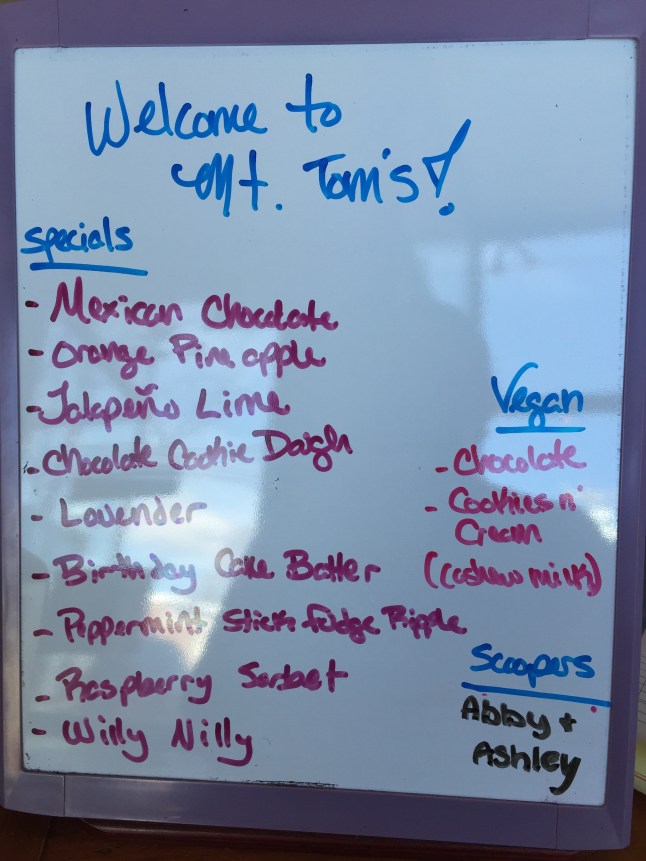 Welcome to
Mt. Tom's!
Specials
- Mexican Chocolate
- Orange Pineapple
- Jalapeño Lime
- Chocolate Cookie Dough
- Lavender
- Birthday Cake Batter
- Peppermint Stick Fudge Ripple
- Raspberry Sorbet
- Willy Nilly
Vegan
- Chocolate
- Cookies n'
Cream
(cashew milk)
Scoopers
Abby +
Ashley